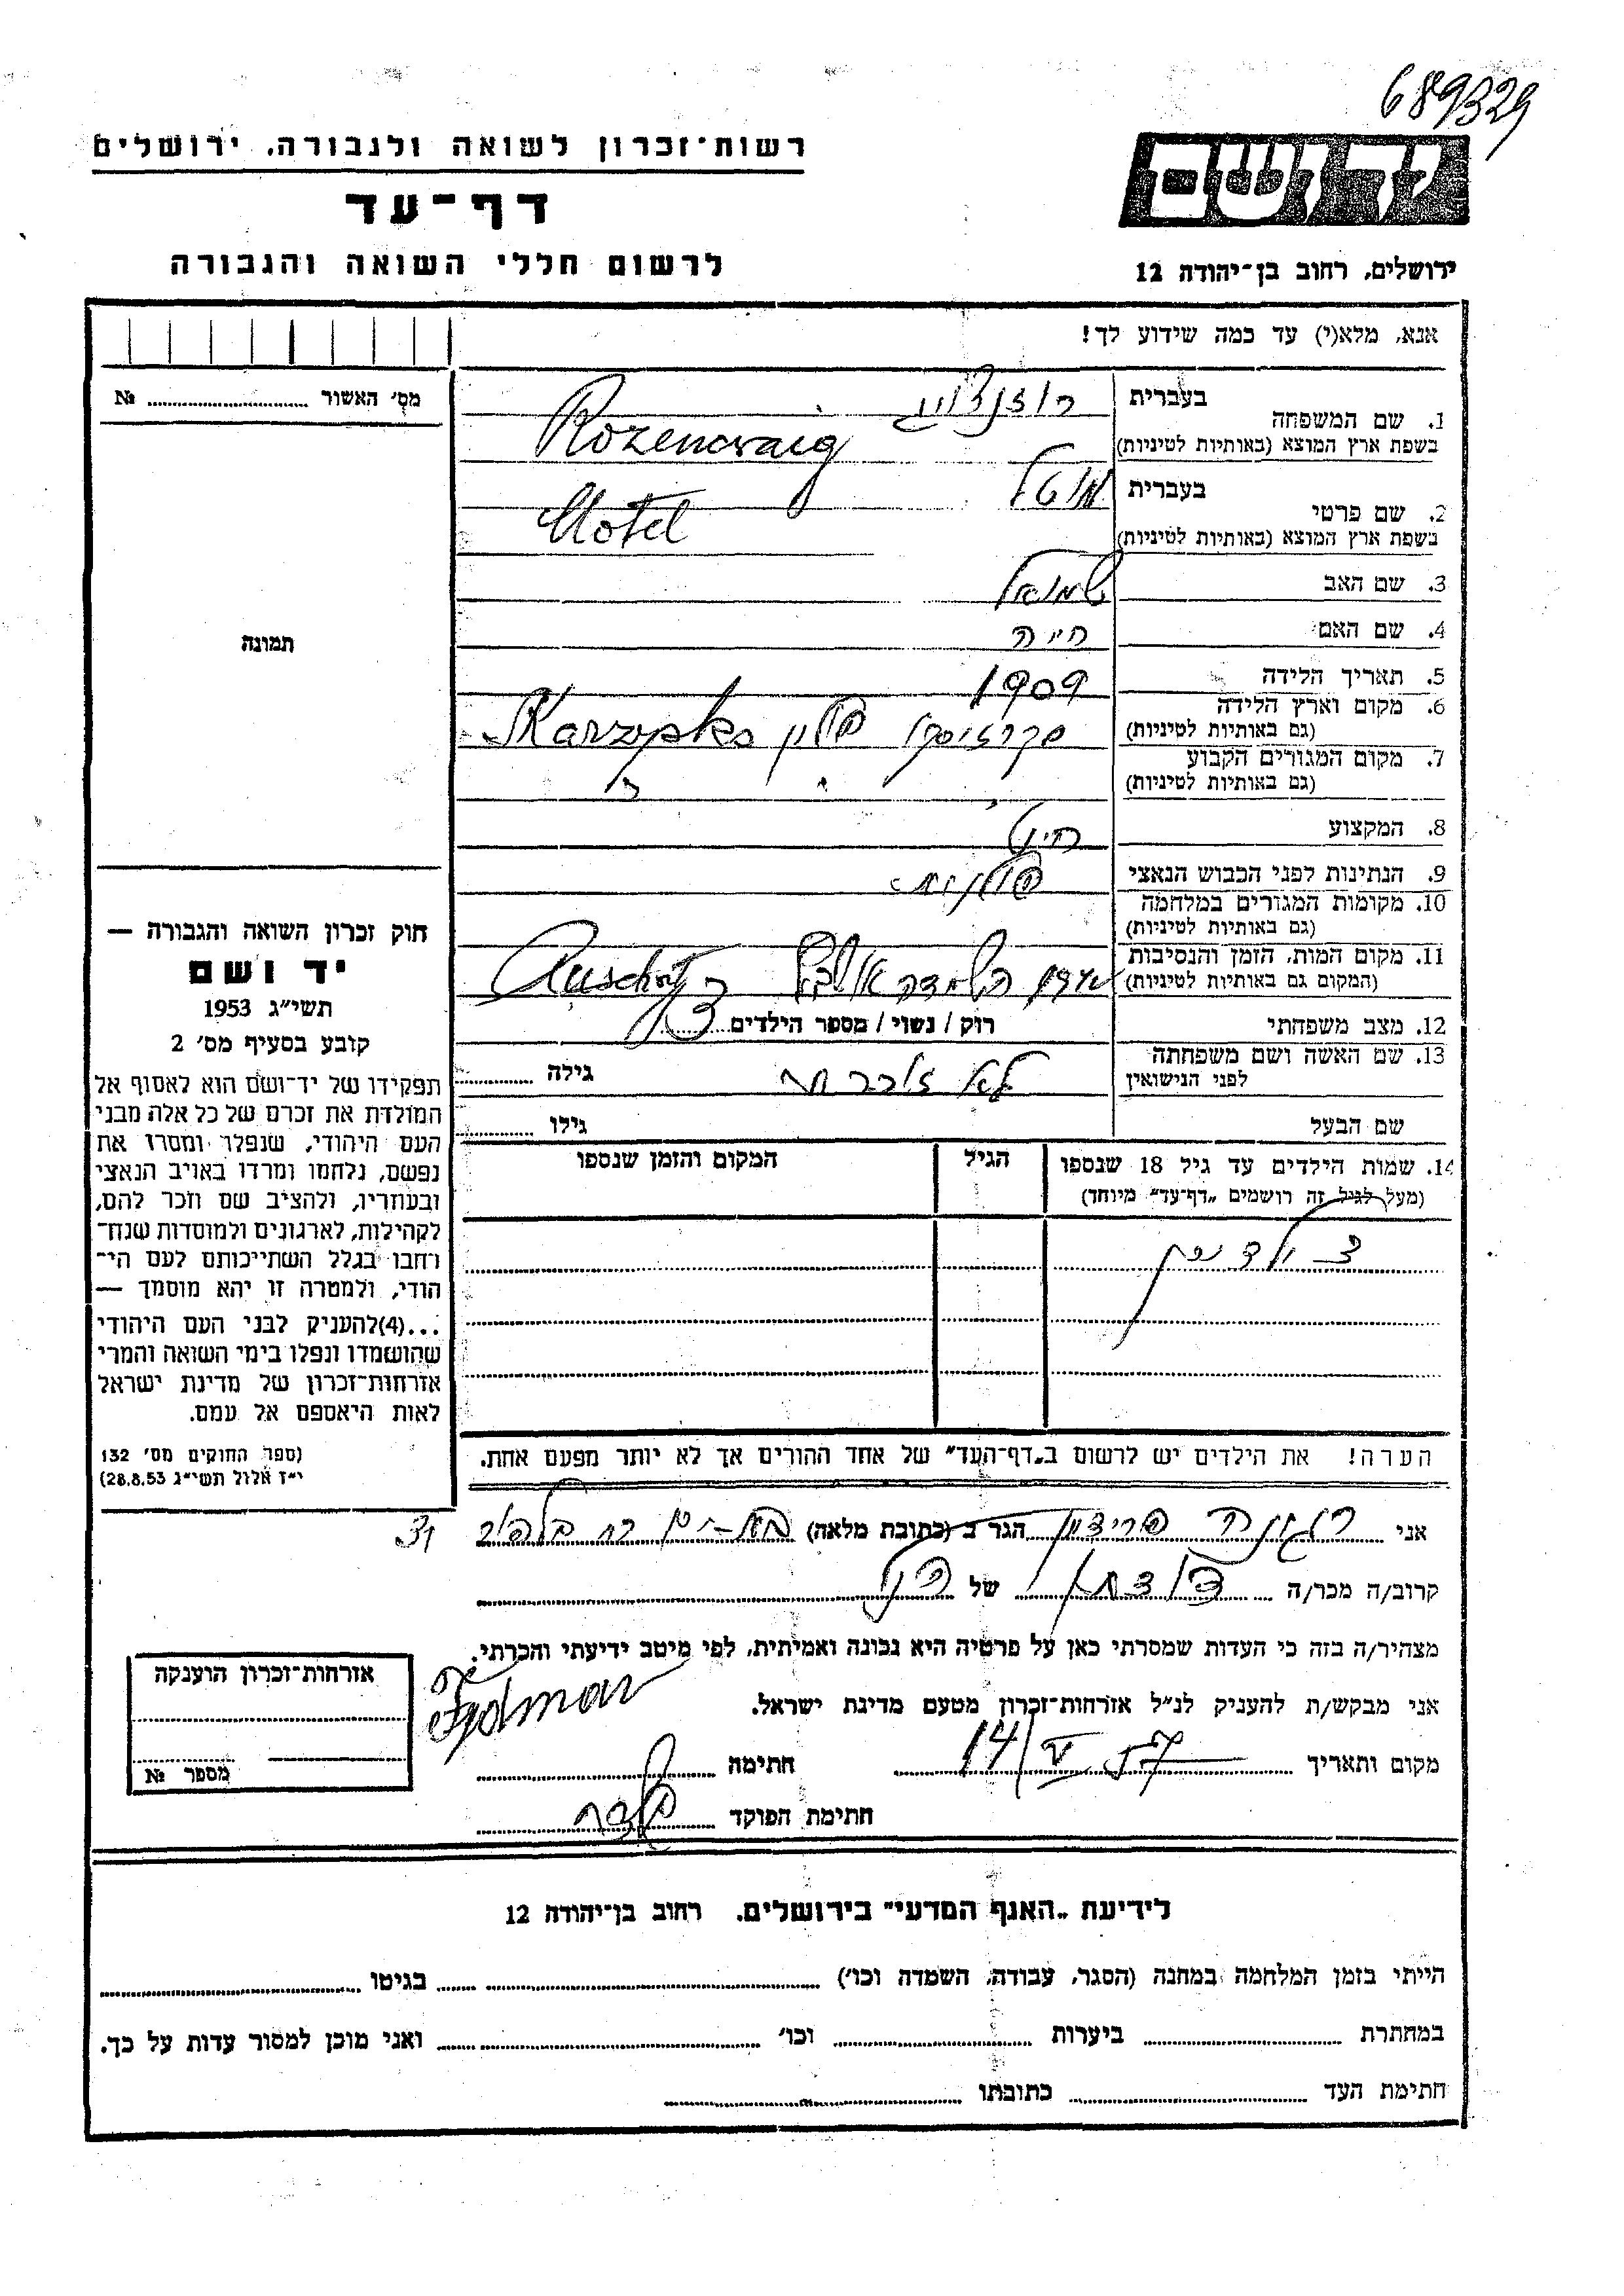 689329
רשות־זכרון לשואה ולגבורה, ירושלים
דף־עד
לרשום חללי השואה והגבורה
ידושם
ירושלים, רחוב בן־יהודה 12
אנא, מלא(י) עד כמה שידוע לך!
מס' האשור № 
1. שם המשפחה בעברית רוזנצוייג
בשפת ארץ המוצא (באותיות לטיניות) Rozencwaig
2. שם פרטי בעברית מוטל
בשפת ארץ המוצא (באותיות לטיניות) Motel
3. שם האב שמואל
4. שם האם חיה
5. תאריך הלידה 1909
6. מקום וארץ הלידה (גם באותיות לטיניות) סקרזיסקו פולין Skarzysko
7. מקום המגורים הקבוע (גם באותיות לטיניות)
8. המקצוע חייט
9. הנתינות לפני הכבוש הנאצי פולנית
10. מקומות המגורים במלחמה (גם באותיות לטיניות)
11. מקום המות, הזמן והנסיבות (המקום גם באותיות לטיניות)
12. מצב משפחתי רוק / נשוי / מספר הילדים
13. שם האשה ושם משפחתה לפני הנישואין לאה גילה
שם הבעל גילו
14. שמות הילדים עד גיל 18 שנספו (מעל לגיל זה רושמים „דף־עד" מיוחד) הגיל המקום והזמן שנספו
ילדים
הערה! את הילדים יש לרשום ב„דף־העד" של אחד ההורים אך לא יותר מפעם אחת.
תמונה
חוק זכרון השואה והגבורה —
יד ושם
תשי"ג 1953
קובע בסעיף מס' 2
תפקידו של יד־ושם הוא לאסוף אל
המולדת את זכרם של כל אלה מבני
העם היהודי, שנפלו ומסרו את
נפשם, נלחמו ומרדו באויב הנאצי
ובעוזריו, ולהציב שם וזכר להם,
לקהילות, לארגונים ולמוסדות שנח־
רחבו בגלל השתייכותם לעם הי־
הודי, ולמטרה זו יהא מוסמך —
...(4)להעניק לבני העם היהודי
שהושמדו ונפלו בימי השואה והמרי
אזרחות־זכרון של מדינת ישראל
לאות היאספם אל עמם.
(ספר החוקים מס' 132
י"ז אלול תשי"ג 28.8.53)
אני רגינה פרידמן הגר ב (כתובת מלאה) בת-ים
קרוב/ה מכר/ה של
מצהיר/ה בזה כי העדות שמסרתי כאן על פרטיה היא נכונה ואמיתית, לפי מיטב ידיעתי והכרתי.
אני מבקש/ת להעניק לנ"ל אזרחות־זכרון מטעם מדינת ישראל.
מקום ותאריך 14/V חתימה
חתימת הפוקד
אזרחות־זכרון הוענקה
מספר №
לידיעת „האגף המדעי" בירושלים. רחוב בן־יהודה 12
הייתי בזמן המלחמה במחנה (הסגר, עבודה, השמדה וכו') בגיטו
במחתרת ביערות וכו' ואני מוכן למסור עדות על כך.
חתימת העד כתובתו